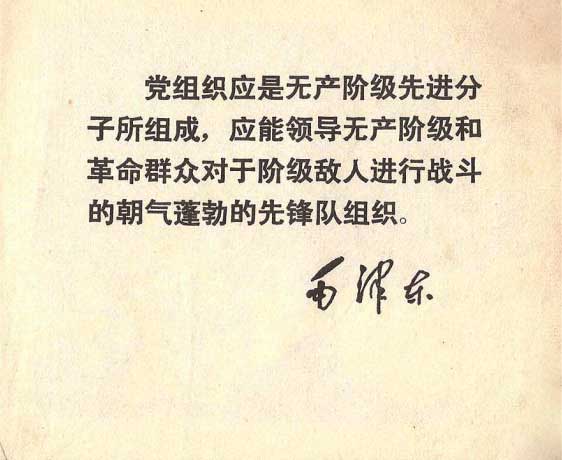 党组织应是无产阶级先进分
子所组成，应能领导无产阶级和
革命群众对于阶级敌人进行战斗
的朝气蓬勃的先锋队组织。
毛泽东